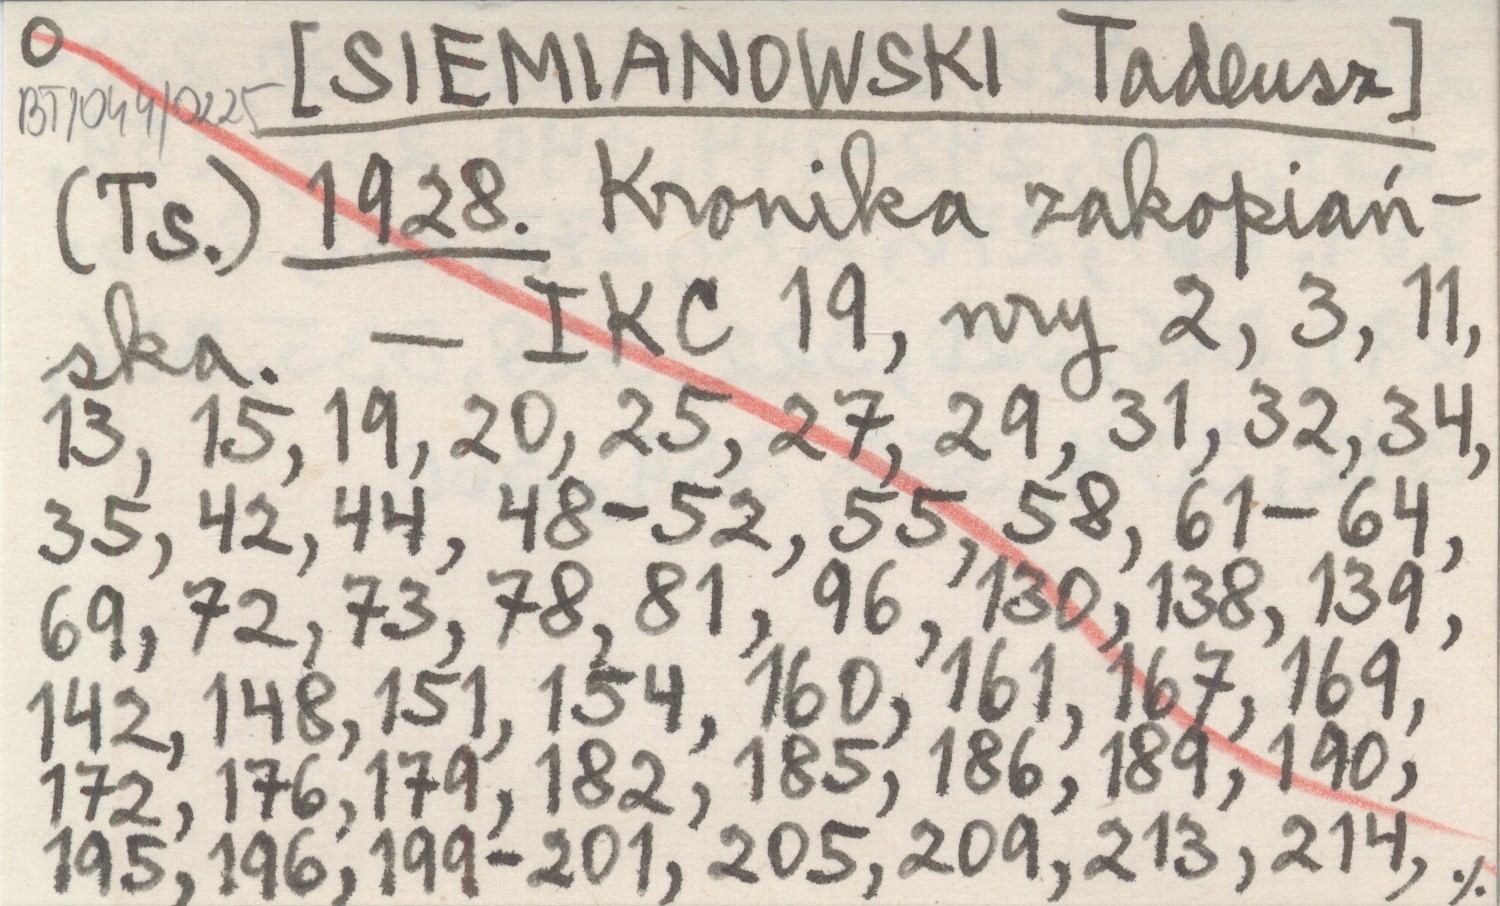 O
[SIEMIANOWSKI Tadeusz]
BT/044/0225
(Ts.) 1928. Kronika zakopiań-
ska. — IKC 19, nry 2, 3, 11,
13, 15, 19, 20, 25, 27, 29, 31, 32, 34,
35, 42, 44, 48-52, 55, 58, 61-64,
69, 72, 73, 78, 81, 96, 130, 138, 139,
142, 148, 151, 154, 160, 161, 167, 169,
172, 176, 179, 182, 185, 186, 189, 190,
195, 196, 199-201, 205, 209, 213, 214, ./.